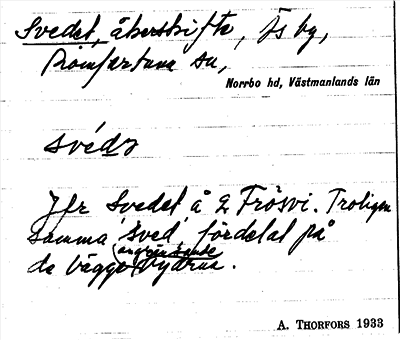 Svedet, åkerskifte, Ås by,
Romfartuna sn,
Norrbo hd, Västmanlands län
svédȝ
Jfr Svedet å 2 Frösvi. Troligen
samma sved, fördelat på
de bägge angränsande byarna.
A. THORFORS 1933